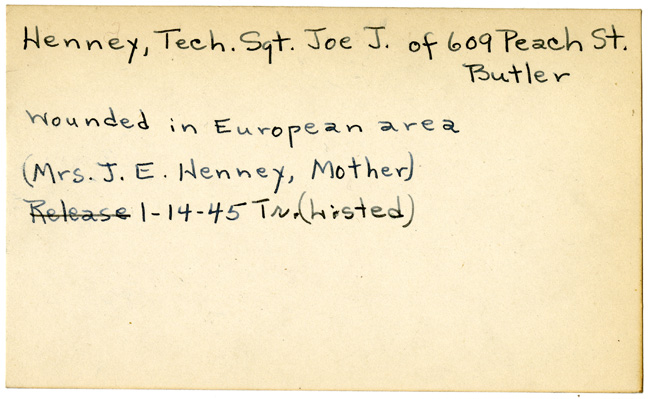 Henney, Tech. Sgt. Joe J. of 609 Peach St.
Butler
Wounded in European area
(Mrs. J. E. Henney, Mother)
Release 1-14-45 Tr. (Listed)